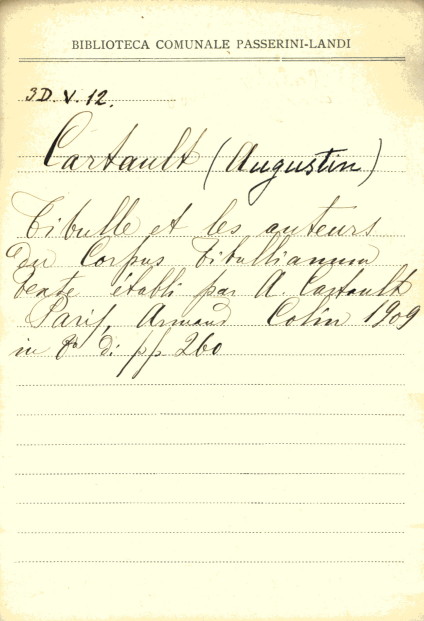 BIBLIOTECA COMUNALE PASSERINI-LANDI
3D. V. 12.
Cartault (Augustin)
Tibulle et les auteurs
du Corpus Tibullianum
texte établi par A. Cartault
Paris, Armand Colin 1909
in 8° di pp 260